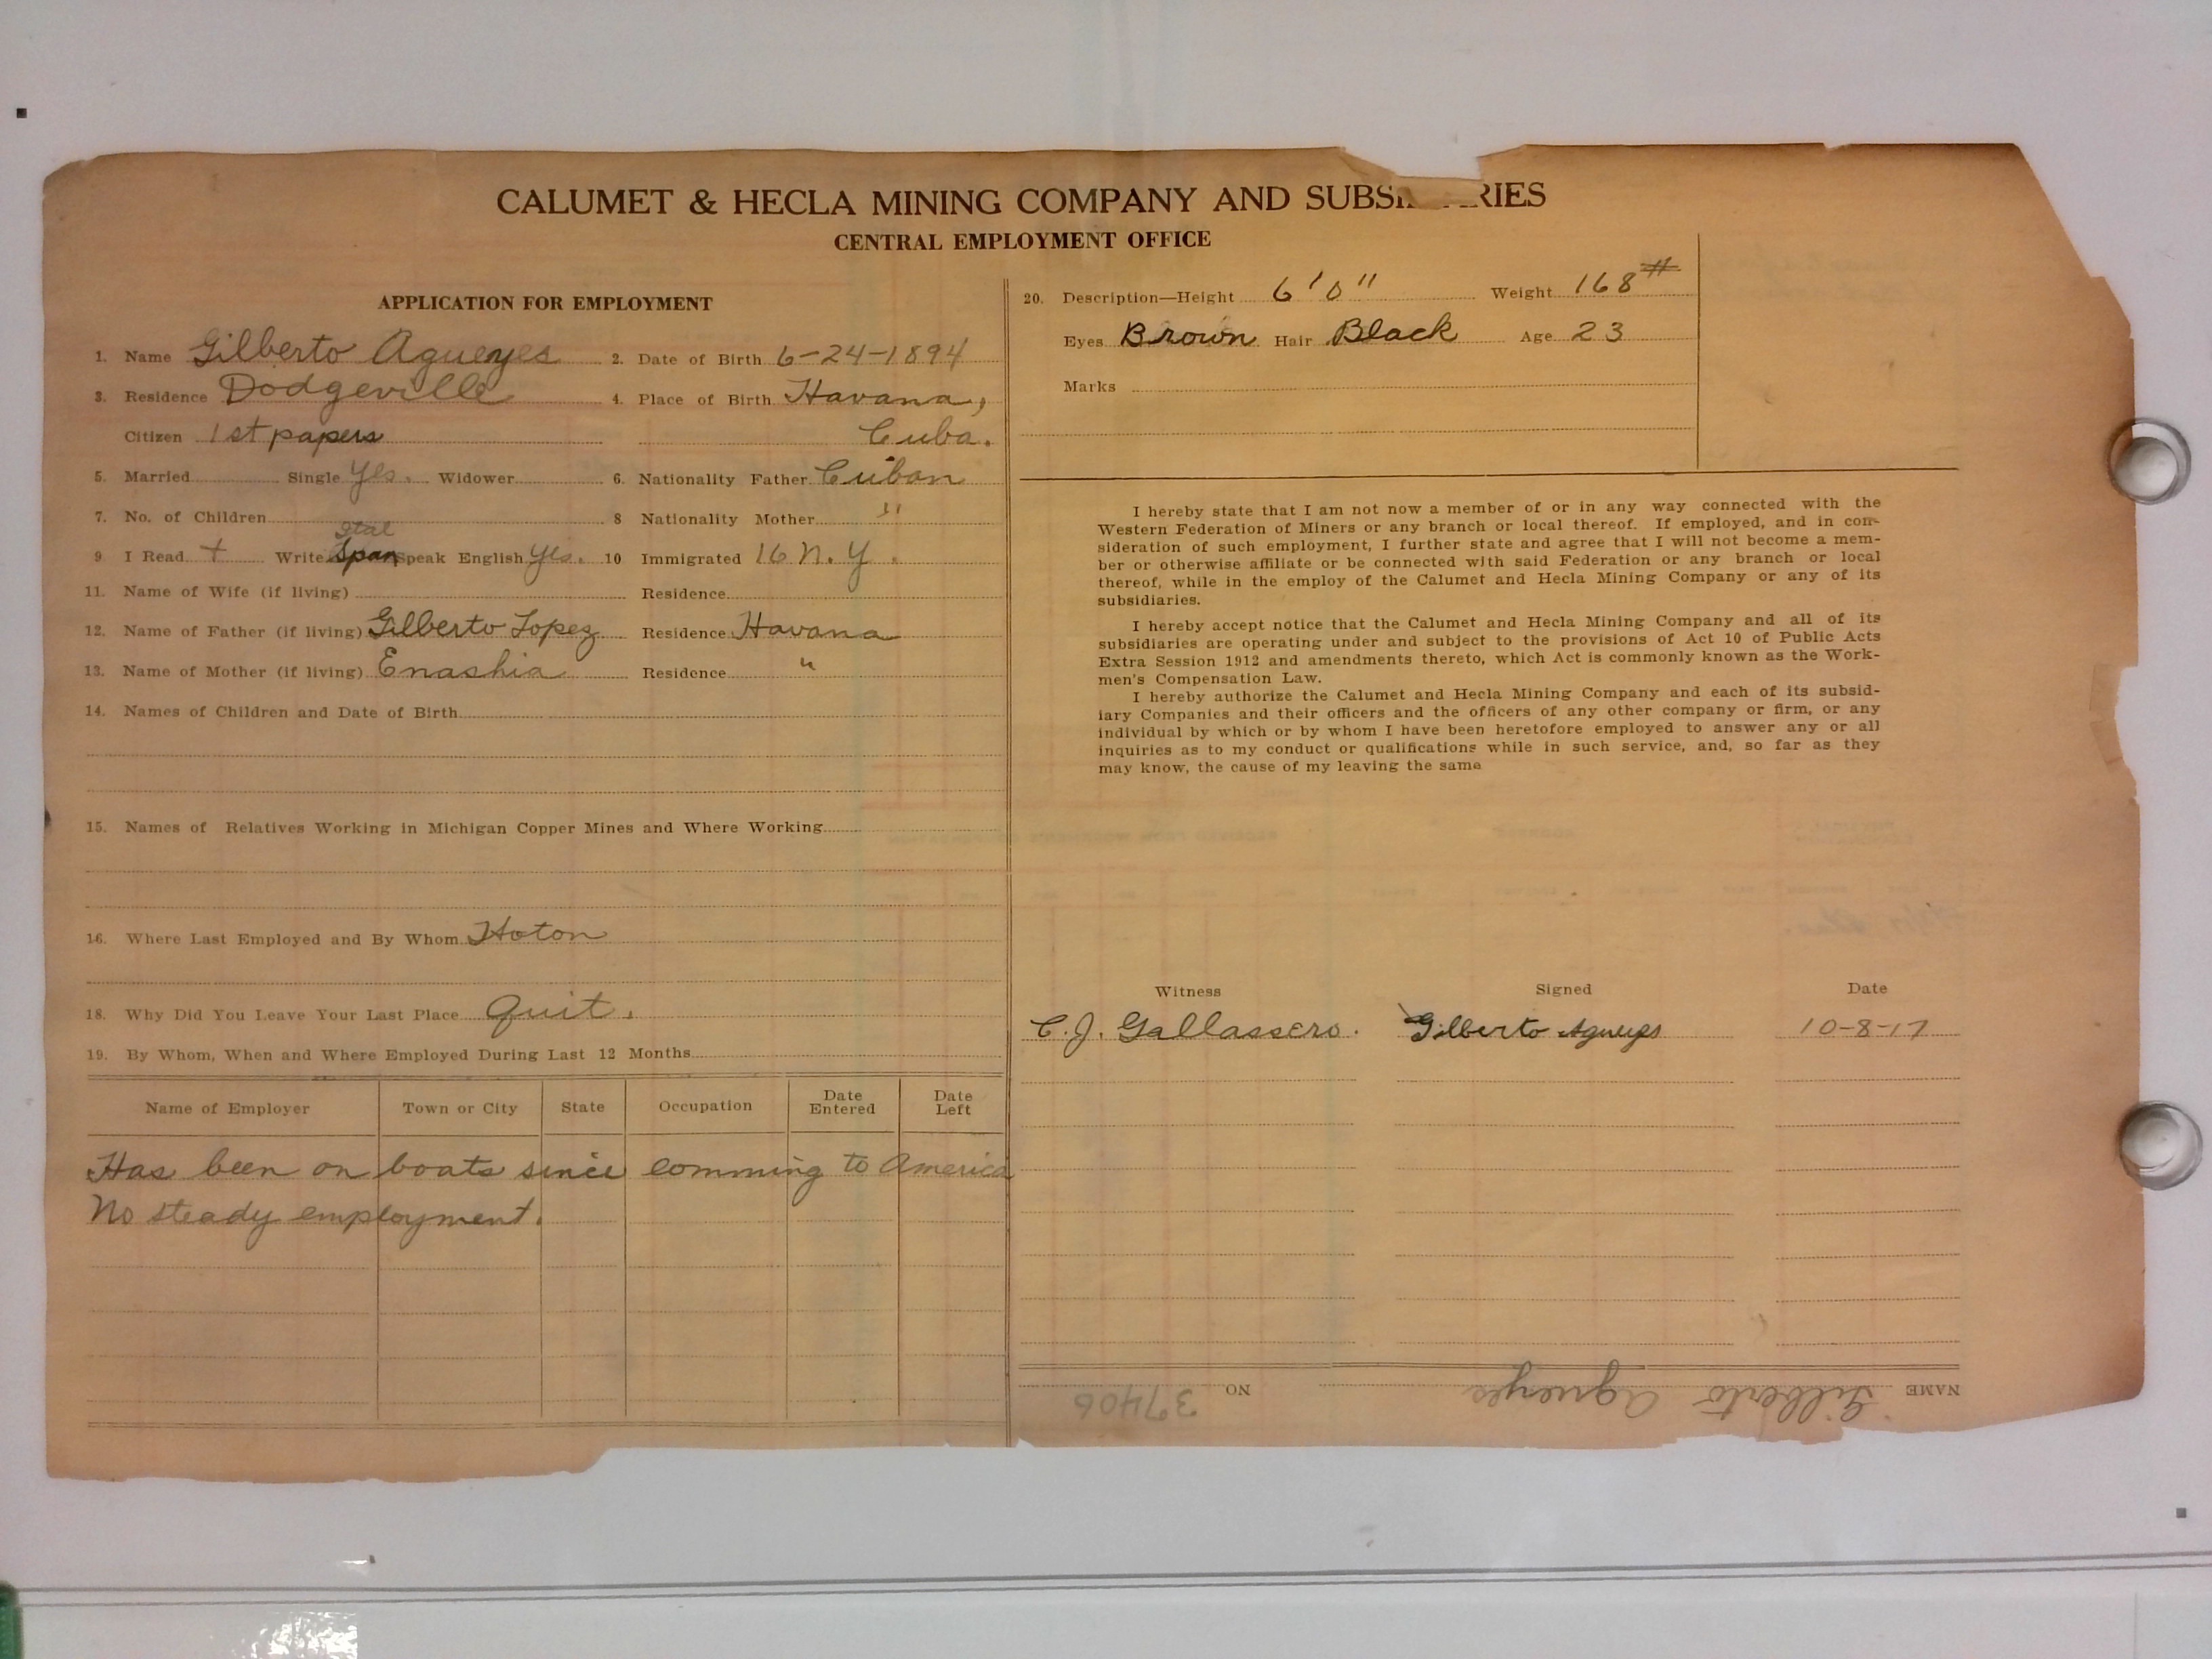 CALUMET & HECLA MINING COMPANY AND SUBS RIES
CENTRAL EMPLOYMENT OFFICE
APPLICATION FOR EMPLOYMENT
1. Name Gilberto Agueyes 2. Date of Birth 6-24-1894
3. Residence Dodgeville 4. Place of Birth Havana,
Citizen 1st papers Cuba.
5. Married Single Yes. Widower 6. Nationality Father Cuban
7. No. of Children 8 Nationality Mother "
Ital
9 I Read + Write Span Speak English yes. 10 Immigrated 16 N.Y.
11. Name of Wife (if living) Residence
12. Name of Father (if living) Gilberto Lopez Residence Havana
13. Name of Mother (if living) Enashia Residence "
14. Names of Children and Date of Birth
15. Names of Relatives Working in Michigan Copper Mines and Where Working
16. Where Last Employed and By Whom Hoton
18. Why Did You Leave Your Last Place Quit.
19. By Whom, When and Where Employed During Last 12 Months
Name of Employer Town or City State Occupation Date Entered Date Left
Has been on boats since comming to America
No steady employment.
20. Description—Height 6'0" Weight 168#
Eyes Brown Hair Black Age 23
Marks
I hereby state that I am not now a member of or in any way connected with the
Western Federation of Miners or any branch or local thereof. If employed, and in con-
sideration of such employment, I further state and agree that I will not become a mem-
ber or otherwise affiliate or be connected with said Federation or any branch or local
thereof, while in the employ of the Calumet and Hecla Mining Company or any of its
subsidiaries.
I hereby accept notice that the Calumet and Hecla Mining Company and all of its
subsidiaries are operating under and subject to the provisions of Act 10 of Public Acts
Extra Session 1912 and amendments thereto, which Act is commonly known as the Work-
men's Compensation Law.
I hereby authorize the Calumet and Hecla Mining Company and each of its subsid-
iary Companies and their officers and the officers of any other company or firm, or any
individual by which or by whom I have been heretofore employed to answer any or all
inquiries as to my conduct or qualifications while in such service, and, so far as they
may know, the cause of my leaving the same
Witness Signed Date
C. J. Gallassero. Gilberto Agueyes 10-8-17
NAME Gilberto Agueyes NO 37406